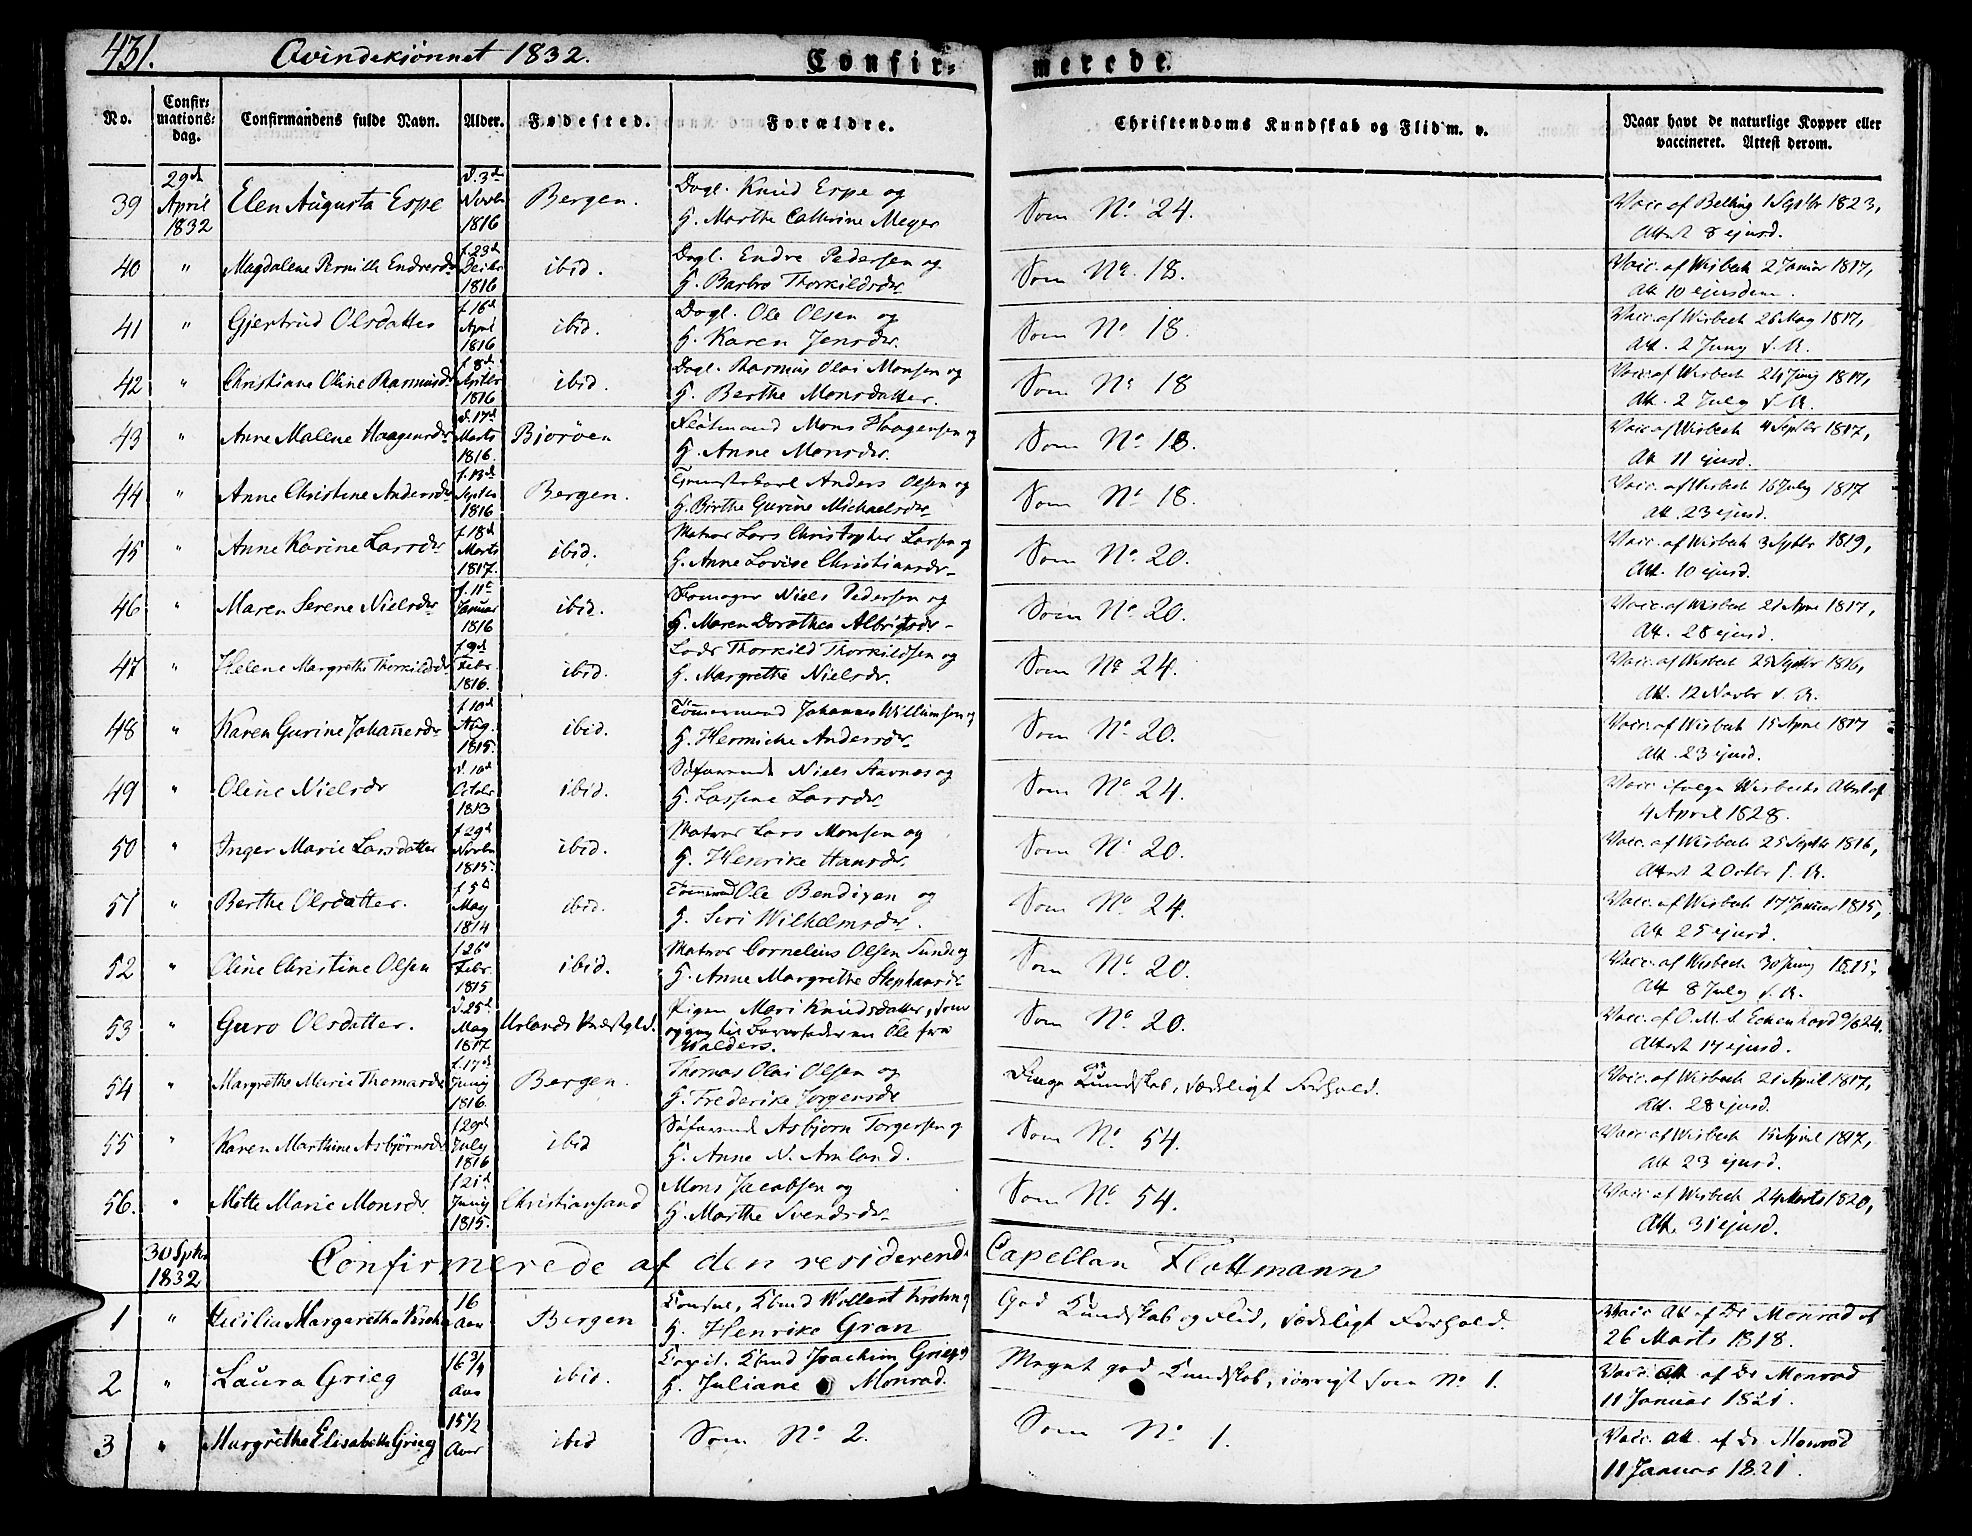 431.
Qvindekiønnet 1832.
Confir- merede.
No.
Confir-
mations-
dag.
Confirmandens fulde Navn.
Alder.
Fødested.
Forældre.
Christendoms Kundskab og Flid m. v.
Naar havt de naturlige Kopper eller
vaccineret. Attest derom.
39 29de April 1832 Elen Augusta Espe d. 3de Novbr 1816 Bergen. Dagl. Knud Espe og
H. Marthe Cathrine Meyer Som No. 24. Vacc. af Belling 1 Septbr 1823,
Attest 8 ejusd.
40 " Magdalene Pernille Endresdr f. 23de 1816 ibid. Dagl. Endre Pedersen og
H. Barbro Thorkildsdr Som No. 18. Vacc. af Wisbech 2 Januar 1817,
Att 10 ejusdem.
41 " Gjertrud Olsdatter f. 16de April 1816 ibid. Dagl. Ole Olsen og
H. Karen Jensdr. Som No. 18. Vacc. af Wisbech 26 May 1817,
Att. 2 Juny s. A.
42 " Christiane Oline Rasmusdr f. 8de Septbr 1816 ibid. Dagl. Rasmus Olai Monsen og
H. Berthe Monsdatter. Som No. 18 Vacc. af Wisbech 24 Juny 1817,
Att. 2 July s. A.
43 " Anne Malene Haagensdr d. 17de Marts 1816. Biorøen Flotmand Mons Haagensen og
H. Anne Monsdr. Som No. 18. Vacc. af Wisbech 4 Septbr 1817,
Att 11 ejusd.
44 " Anne Christine Andersdr f. 13de Septbr 1816 Bergen. Anders Olsen og
H. Birthe Gurine Michaelsdr Som No. 18. Vacc. af Wisbech 16 July 1817
Att. 23 ejusd.
45 " Anne Karine Larsdr f. 18de Marts 1817. ibid. Matros Lars Christopher Larsen og
H. Anne Lovise Christiansdr Som No. 20. Vacc. af Wisbech 3 Septbr 1819,
Att. 10 ejusd.
46 " Maren Serene Nielsdr f. 11te Januar 1816 ibid. Skomager Niels Pedersen og
H. Maren Dorothea Albrigtsdr Som No. 20. Vacc. af Wisbech 21 April 1817,
Att. 28 ejusd.
47 " Helene Margrethe Thorkildsdr f. 9de Febr. 1816. ibid. Lods Thorkild Thorkildsen og
H. Margrethe Nielsdr. Som No. 24. Vacc. af Wisbech 25 Septbr 1816,
Att. 12 Novbr s. A.
48 " Karen Gurine Johannesdr f. 10de Aug. 1815. ibid. Tømmermand Johannes Willumsen og
H. Hermiche Andersdr Som No. 20. Vacc. af Wisbech 15 April 1817
Att. 23 ejusd.
49 " Oline Nielsdr d. 10de Octobr 1813 ibid. Søfarende Niels Stavnes og
H. Lassene Larsdr Som No. 24. Vacc. ifølge Wisbechs Attest af
4 April 1828.
50 " Inger Marie Larsdatter f. 29de Novbr 1815. ibid. Matros Lars Monsen og
H. Henrike Hansdr. Som No. 20. Vacc. af Wisbech 25 Septbr 1816,
Attest 2 Octbr s. A.
51 " Berthe Olsdatter. f. 5te May 1814 ibid. Ole Bendixen og
H. Siri Wilhelmsdr. Som No. 24. Vacc. af Wisbech 17 Januar 1815,
Att 25 ejusd.
52 " Oline Christine Olsen f. 26de Febr. 1815 ibid. Matros Cornelius Olsen Sunde og
H. Anne Margrethe Stephansdr Som No. 20. Vacc. af Wisbech 30 Juny 1815,
Att 8 July s. A.
53 " Guro Olsdatter. d. 25de May 1817 Urlands Præstegld. Pigen Mari Knudsdatter, som
opgav til Barnefader en Ole fra
Walders. Som No. 20. Vacc. af O. M. S. Eckenhard 9/6 24.
Attest 17 ejusd.
54 " Margrethe Marie Thomasdr f. 17de Juny 1816. Bergen. Thomas Olai Olsen og
H. Frederike Jørgensdr Kundskab, sædeligt Forhold. Vacc. af Wisbech 21 April 1817,
Att. 28 ejusd.
55 " Karen Marthine Asbjørnsdr f. 29de July 1816 ibid Søfarende Asbjørn Torgersen og
H. Anne N. Amland. Som No. 54. Vacc. af Wisbech 15 April 1817,
Att 23 ejusd.
56. " Mette Marie Monsdr. f. 21de Juny 1815. Christiansand Mons Jacobsen og
H. Marthe Svendsdr Som No. 54. Vacc. af Wisbech 24 Marts 1820,
Att. 31 ejusd.
30 Sptbr 1832 Confirmerede af den residerende Capellan Flottmann
1 " Cecilia Margaretha Krohn 16 Aar Bergen Consul, Kbmd Wollert Krohn og
H. Henrike Gran God Kundskab og Flid, sædeligt Forhold. Vacc. Att. af Dr Monrad af
26 Marts 1818.
2 " Laura Grieg 16 3/4 Aar ibid. Capit. Kbmd Joachim Grieg og
H. Juliane Monrad. Meget god Kundskab, iøvrigt som No. 1. Vacc. Att. af Dr Monrad
11 Januar 1821.
3 " Margrethe Elisabeth Grieg 15 1/2 Aar ibid Som No. 2. Som No. 1. Vacc. Att. af Dr Monrad
11 Januar 1821.